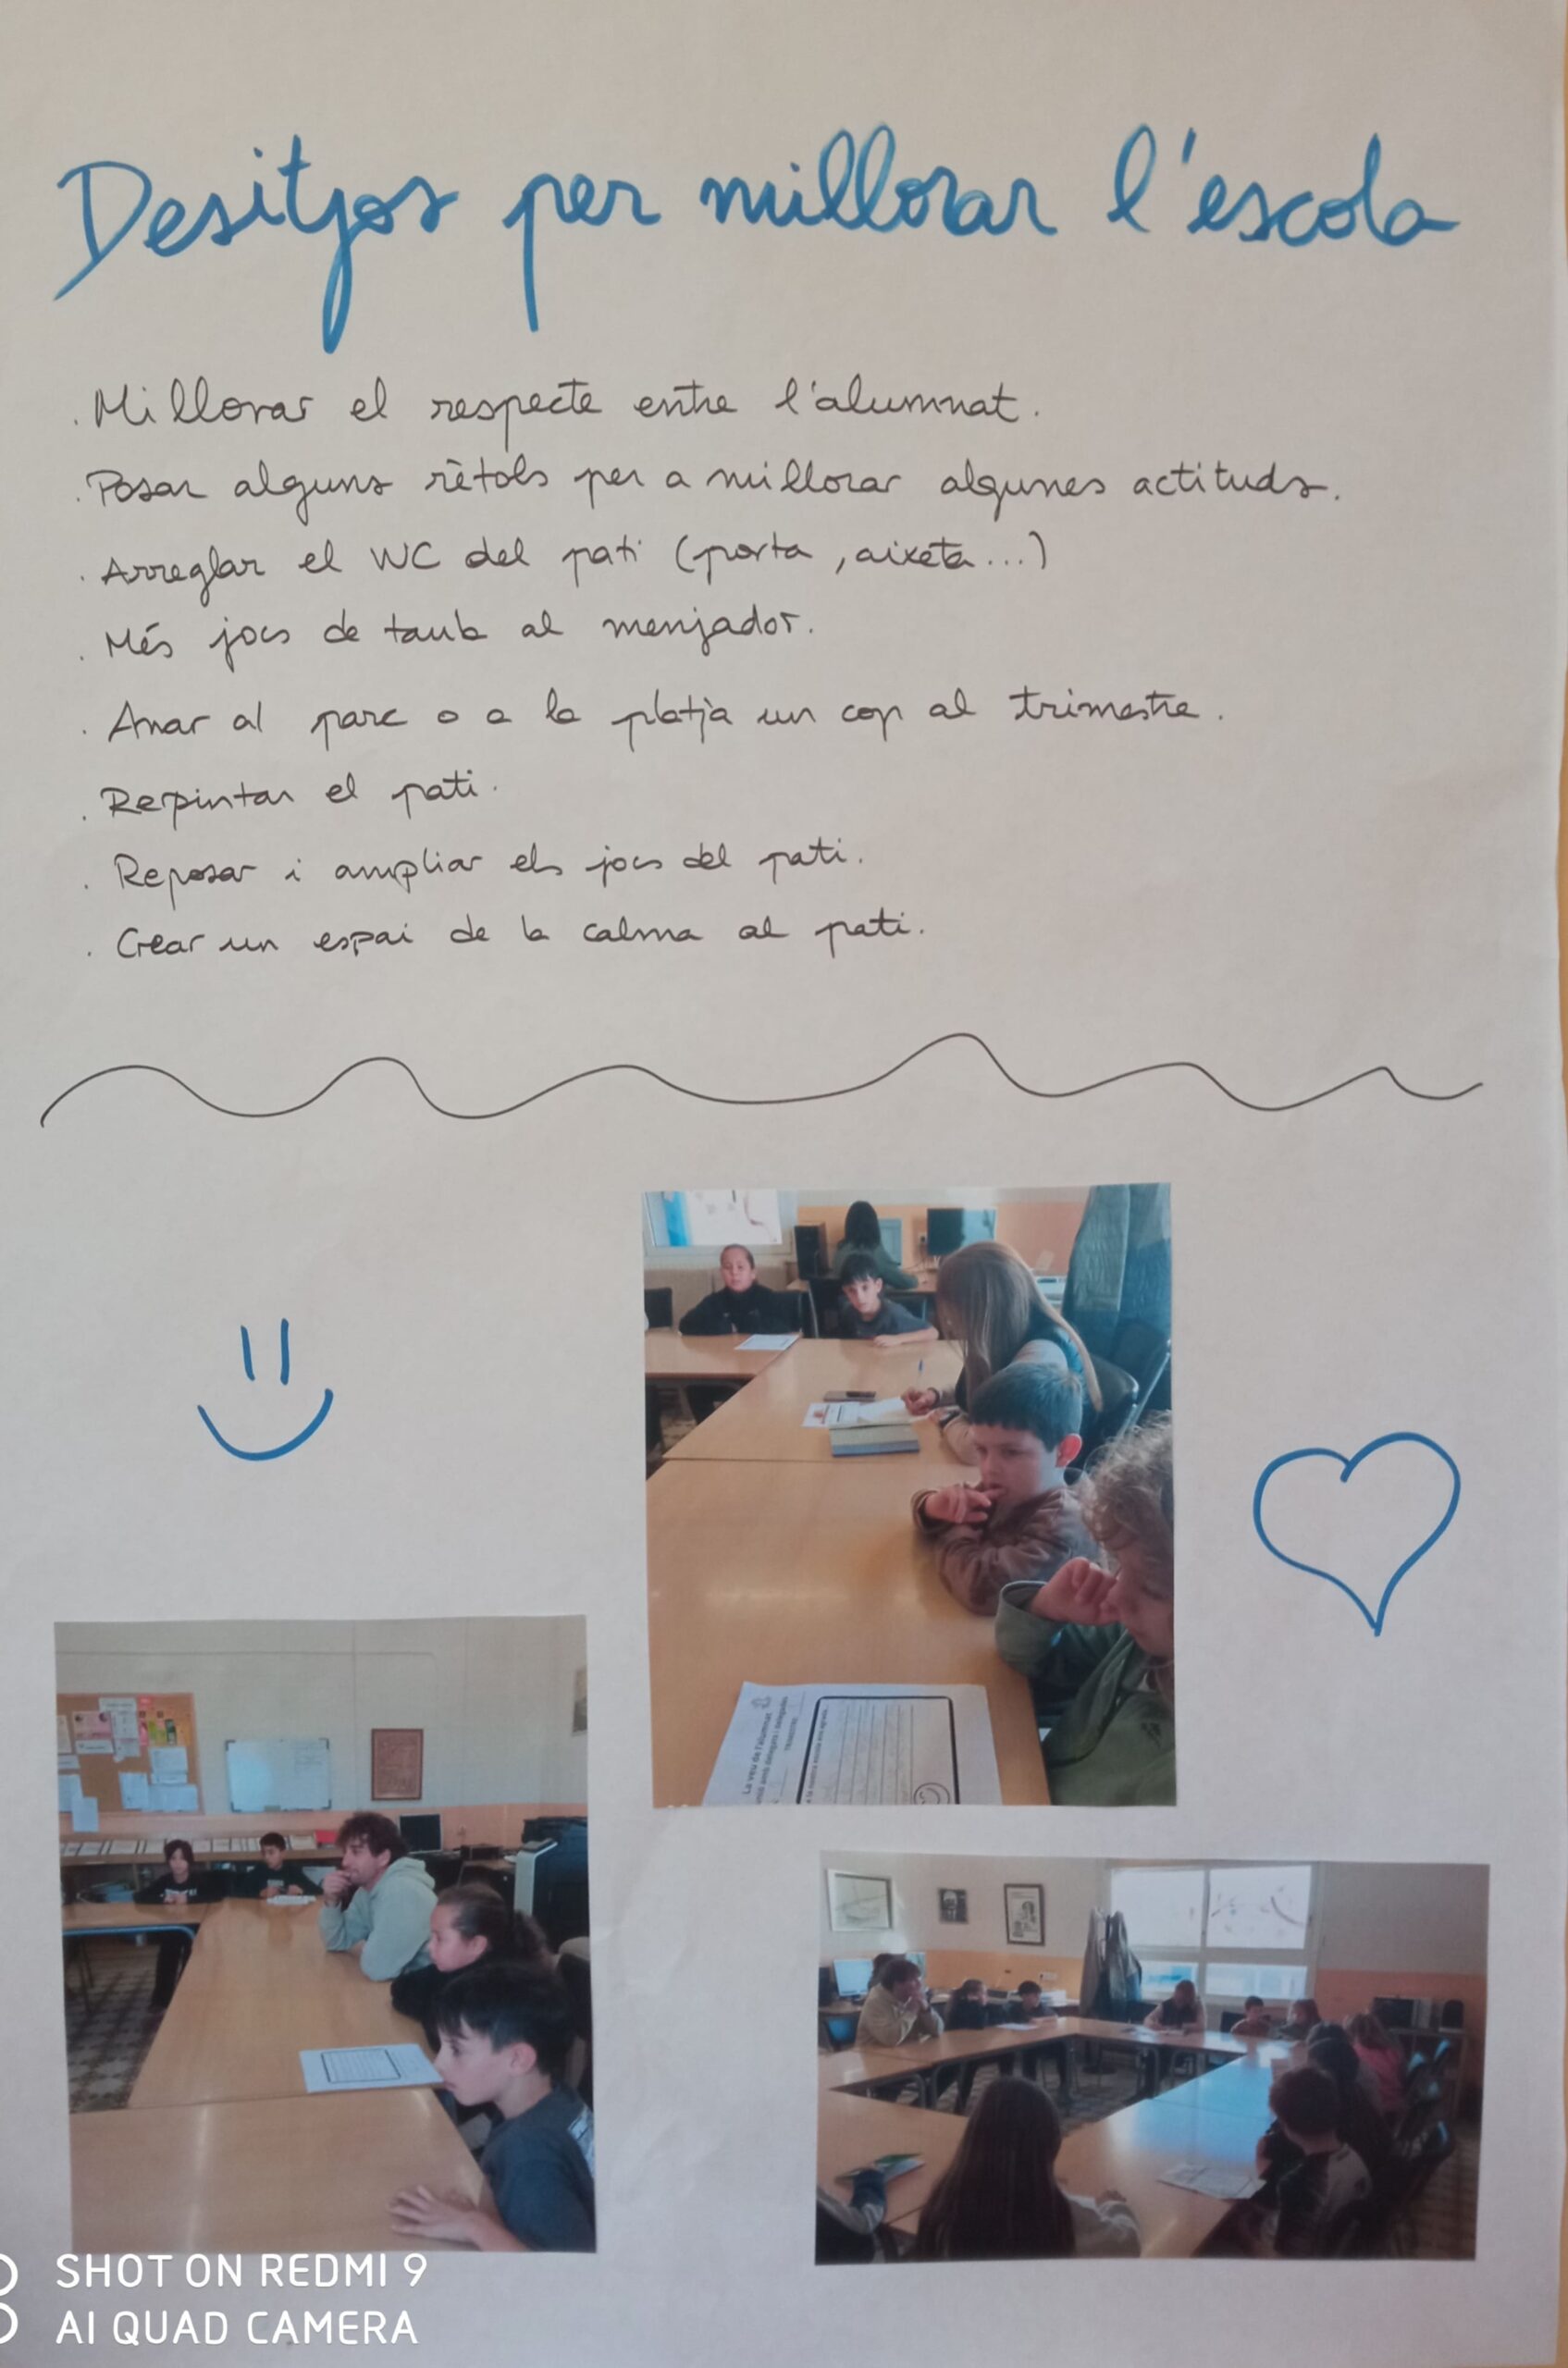 Desitjos per millorar l'escola
. Millorar el respecte entre l'alumnat.
. Posar alguns rètols per a millorar algunes actituds.
. Arreglar el WC del pati (porta, aixeta...)
. Més jocs de taula al menjador.
. Anar al parc o a la platja un cop al trimestre.
. Repintar el pati.
. Reposar i ampliar els jocs del pati.
. Crear un espai de la calma al pati.
La veu de l'alumnat
SHOT ON REDMI 9
AI QUAD CAMERA